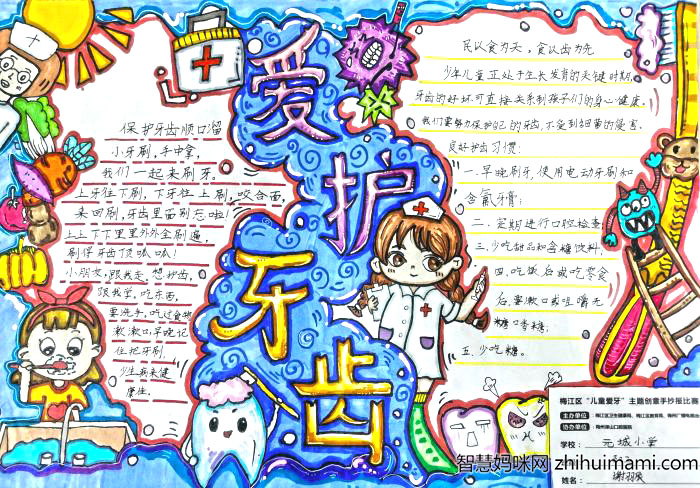 爱护牙齿
保护牙齿顺口溜
小牙刷,手中拿,
我们一起来刷牙。
上牙往下刷,下牙往上刷,咬合面,
来回刷,牙齿里面别忘啦!
上上下下里里外外全刷遍,
刷得牙齿顶呱呱!
小朋友,跟我走,想护齿,
跟我学。吃东西,
要洗手,吃过食物
漱漱口,早晚记
住把牙刷
少生病来健
康准。
民以食为天,食以齿为先
少年儿童正处于生长发育的关键时期,
牙齿的好坏可直接关系到孩子们的身心健康。
我们要努力保护自己的牙齿,不受到细菌的侵害。
良好护齿习惯:
一.早晚刷牙,使用电动牙刷和
含氟牙膏;
二.定期进行口腔检查
三.少吃甜品和含糖饮料,
四.吃饭后或吃零食
后要漱口或咀嚼无
糖口香糖;
五.少吃糖。
梅江区“儿童爱牙”主题创意手抄报比赛
主办单位
协办单位
学校:元城小学
姓名:
智慧妈咪网 zhihuimami.com